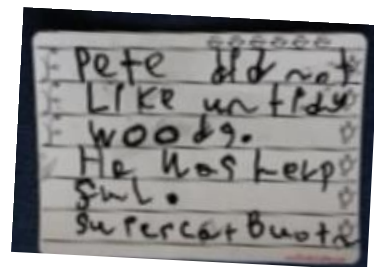 Pete did not
Like untidy
woods.
He was help
ful.
supercat